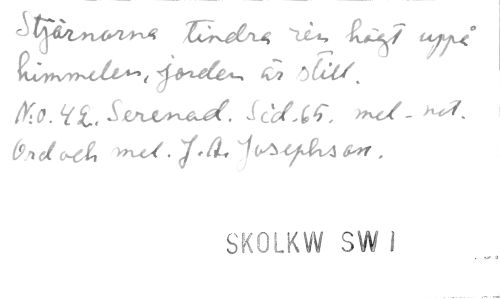 Stjärnorna tindra ren högt uppå
himmelen, jorden är still.
N:o. 42. Serenad. Sid. 65. mel-not.
Ord och mel. J. A. Josephson.
SKOLKW SW I